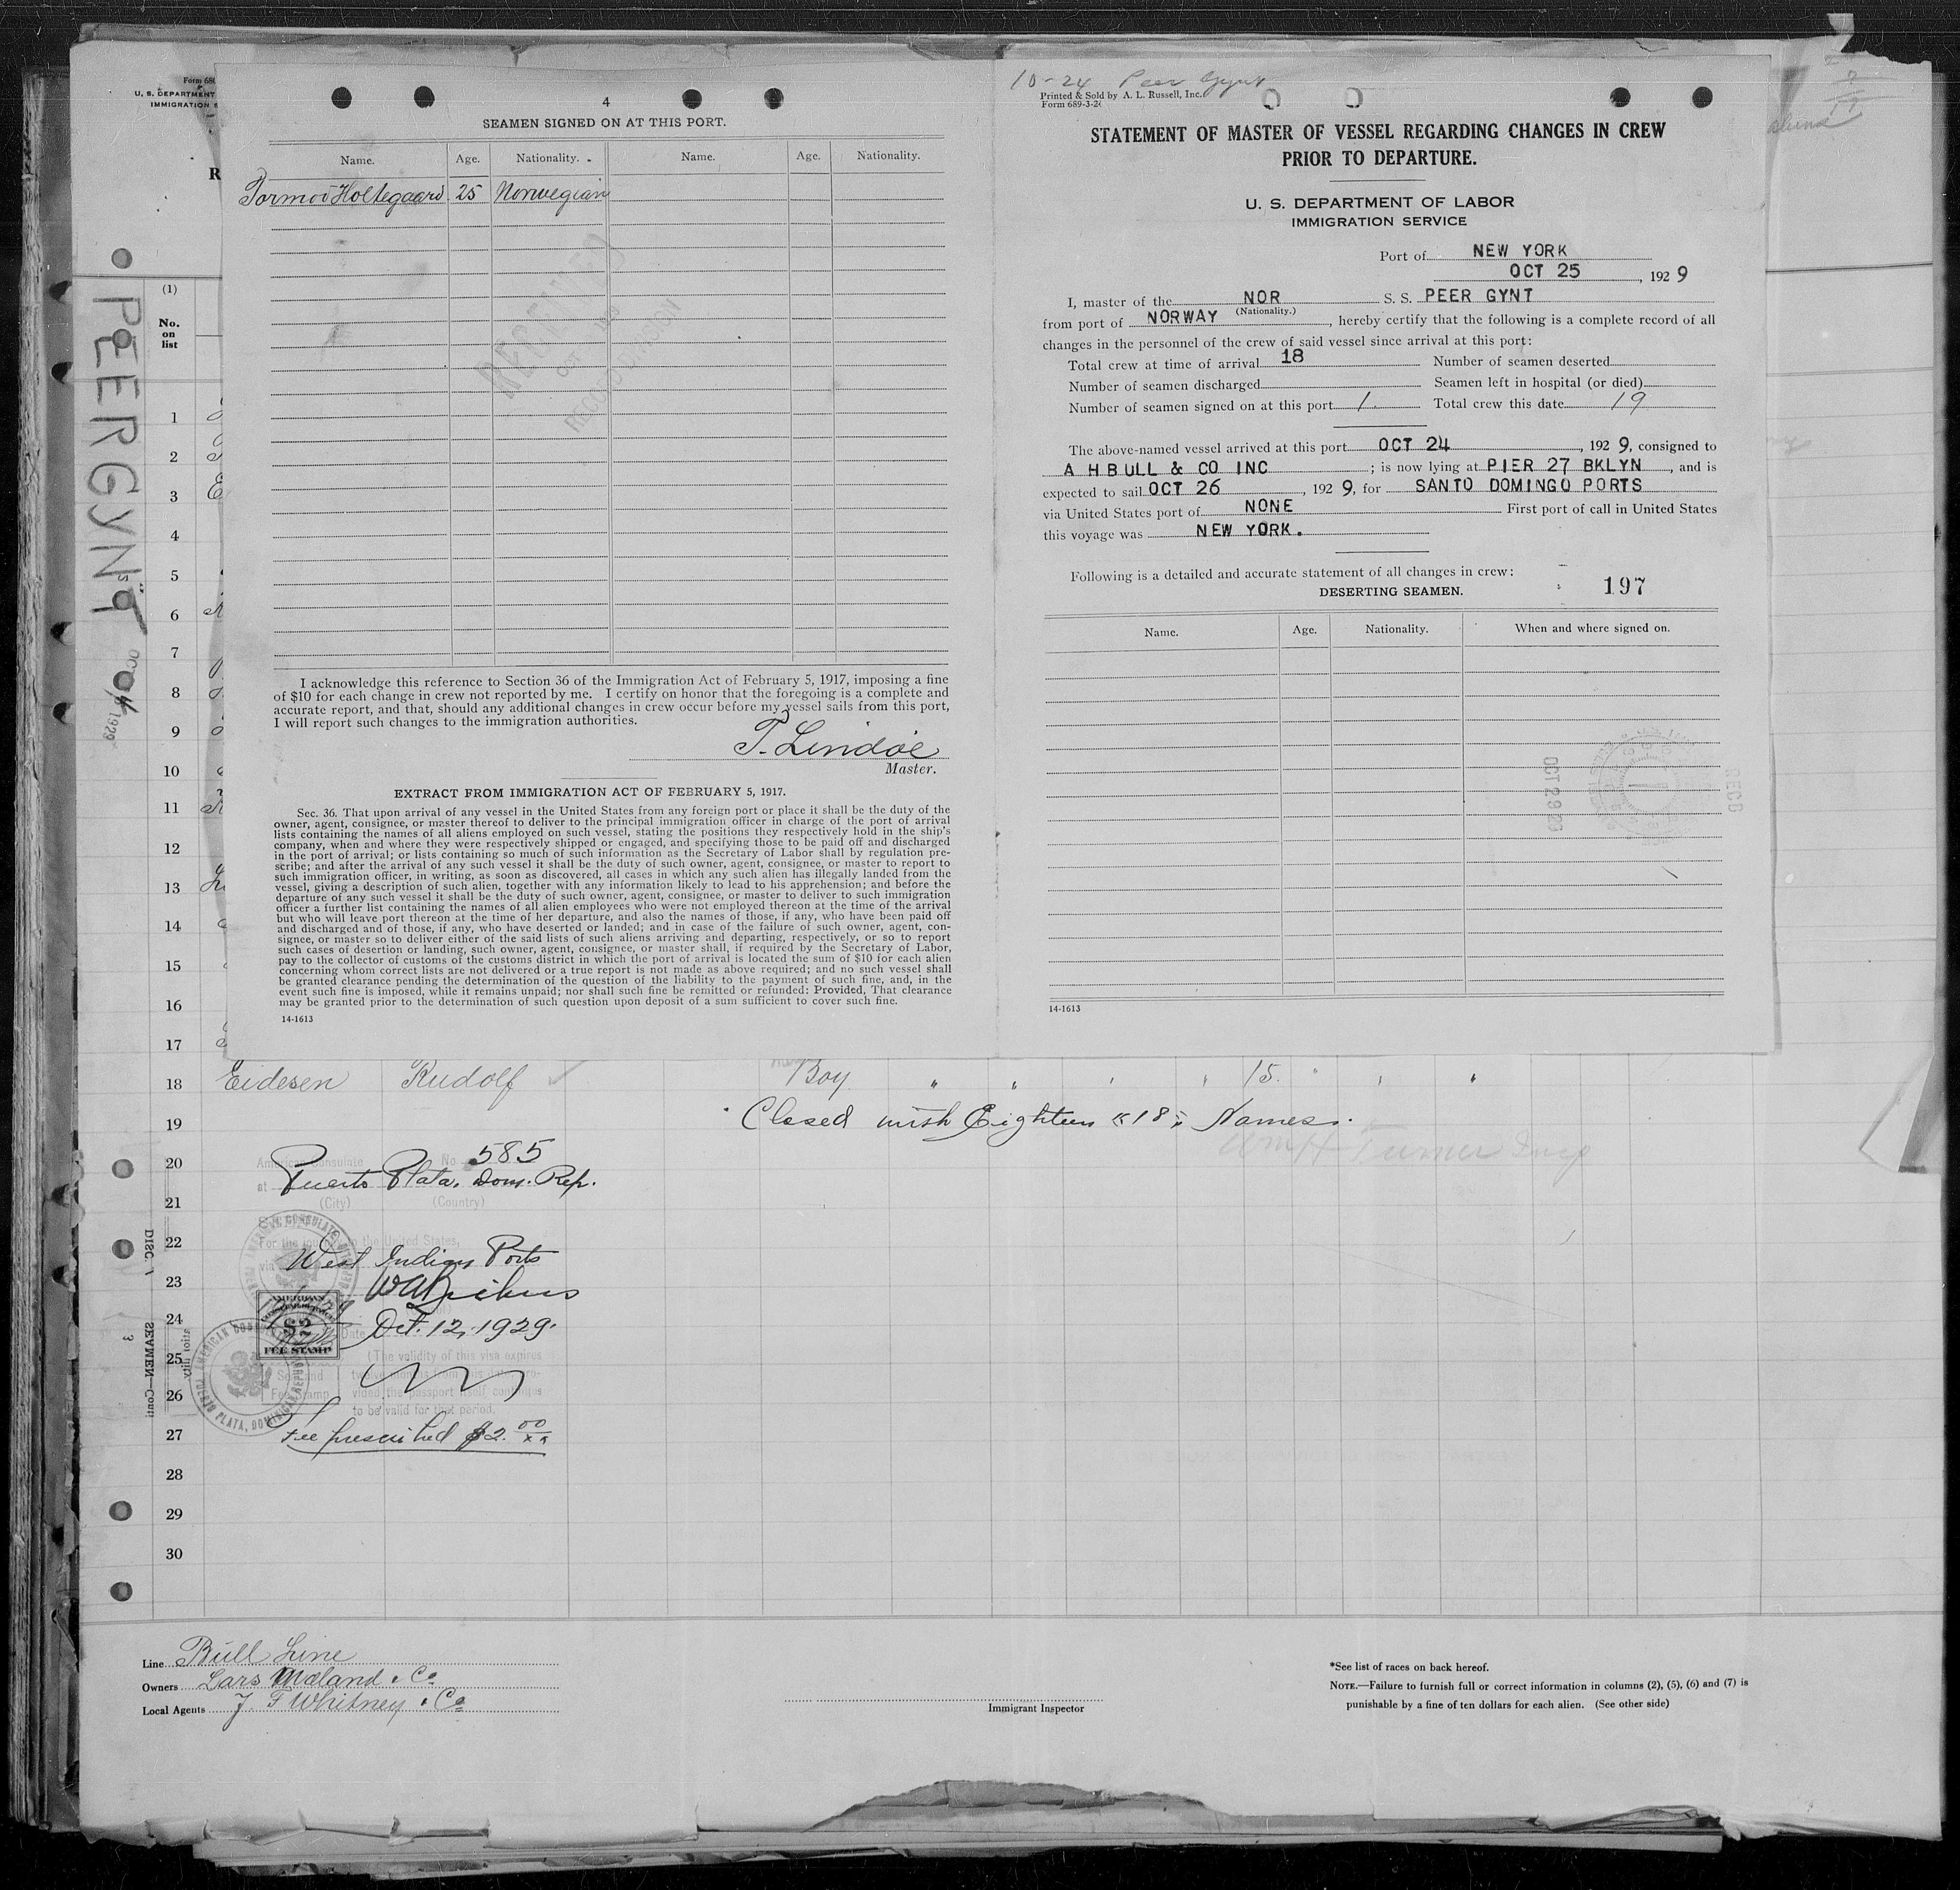 Form 680
U. S. DEPARTMENT
IMMIGRATION S
R
PEER GYNT
1929
(1)
No.
on
list
1
2
3
4
5
6
7
8
9
10
11
12
13
14
15
16
17
4
SEAMEN SIGNED ON AT THIS PORT.
Name. Age. Nationality. Name. Age. Nationality.
Tormod Holtegaard 25 Norwegian
RECORDS DIVISION
I acknowledge this reference to Section 36 of the Immigration Act of February 5, 1917, imposing a fine
of $10 for each change in crew not reported by me. I certify on honor that the foregoing is a complete and
accurate report, and that, should any additional changes in crew occur before my vessel sails from this port,
I will report such changes to the immigration authorities.
T. Lindöe
Master.
EXTRACT FROM IMMIGRATION ACT OF FEBRUARY 5, 1917.
Sec. 36. That upon arrival of any vessel in the United States from any foreign port or place it shall be the duty of the
owner, agent, consignee, or master thereof to deliver to the principal immigration officer in charge of the port of arrival
lists containing the names of all aliens employed on such vessel, stating the positions they respectively hold in the ship's
company, when and where they were respectively shipped or engaged, and specifying those to be paid off and discharged
in the port of arrival; or lists containing so much of such information as the Secretary of Labor shall by regulation pre-
scribe; and after the arrival of any such vessel it shall be the duty of such owner, agent, consignee, or master to report to
such immigration officer, in writing, as soon as discovered, all cases in which any such alien has illegally landed from the
vessel, giving a description of such alien, together with any information likely to lead to his apprehension; and before the
departure of any such vessel it shall be the duty of such owner, agent, consignee, or master to deliver to such immigration
officer a further list containing the names of all alien employees who were not employed thereon at the time of the arrival
but who will leave port thereon at the time of her departure, and also the names of those, if any, who have been paid off
and discharged and of those, if any, who have deserted or landed; and in case of the failure of such owner, agent, con-
signee, or master so to deliver either of the said lists of such aliens arriving and departing, respectively, or so to report
such cases of desertion or landing, such owner, agent, consignee, or master shall, if required by the Secretary of Labor,
pay to the collector of customs of the customs district in which the port of arrival is located the sum of $10 for each alien
concerning whom correct lists are not delivered or a true report is not made as above required; and no such vessel shall
be granted clearance pending the determination of the question of the liability to the payment of such fine, and, in the
event such fine is imposed, while it remains unpaid; nor shall such fine be remitted or refunded: Provided, That clearance
may be granted prior to the determination of such question upon deposit of a sum sufficient to cover such fine.
14-1613
10-24 Peer Gynt
Printed & Sold by A. L. Russell, Inc.
Form 689-3-2
STATEMENT OF MASTER OF VESSEL REGARDING CHANGES IN CREW
PRIOR TO DEPARTURE.
U. S. DEPARTMENT OF LABOR
IMMIGRATION SERVICE
Port of NEW YORK
OCT 25, 1929
I, master of the NOR S. S. PEER GYNT
(Nationality.)
from port of NORWAY, hereby certify that the following is a complete record of all
changes in the personnel of the crew of said vessel since arrival at this port:
Total crew at time of arrival 18 Number of seamen deserted
Number of seamen discharged Seamen left in hospital (or died)
Number of seamen signed on at this port 1. Total crew this date 19
The above-named vessel arrived at this port OCT 24, 1929, consigned to
A H BULL & CO INC; is now lying at PIER 27 BKLYN, and is
expected to sail OCT 26, 1929, for SANTO DOMINGO PORTS
via United States port of NONE First port of call in United States
this voyage was NEW YORK.
Following is a detailed and accurate statement of all changes in crew:
197
DESERTING SEAMEN.
Name. Age. Nationality. When and where signed on.
OCT 29 29
RECD
14-1613
18 Eidesen Rudolf Boy " " " " 15. " " "
19 Closed with Eighteen "18" Names.
Wm H Turner Insp
20
American Consulate No. 585
at Puerto Plata, Dom. Rep.
(City) (Country)
21
22
For the journey to the United States,
via West Indian Ports
23
24
AMERICAN
$2
FEE STAMP
Date Oct. 12, 1929.
(The validity of this visa expires
twelve months from this date pro-
vided the passport itself continues
to be valid for that period.
Seal and
Fee Stamp
AMERICAN CONSULATE
PUERTO PLATA, DOMINICAN REPUBLIC
25
26
27 Fee prescribed $2.00
28
29
30
SEAMEN—Conti
3
Line Bull Line
Owners Lars Mæland & Co
Local Agents J F Whitney & Co
Immigrant Inspector
*See list of races on back hereof.
NOTE.—Failure to furnish full or correct information in columns (2), (5), (6) and (7) is
punishable by a fine of ten dollars for each alien. (See other side)